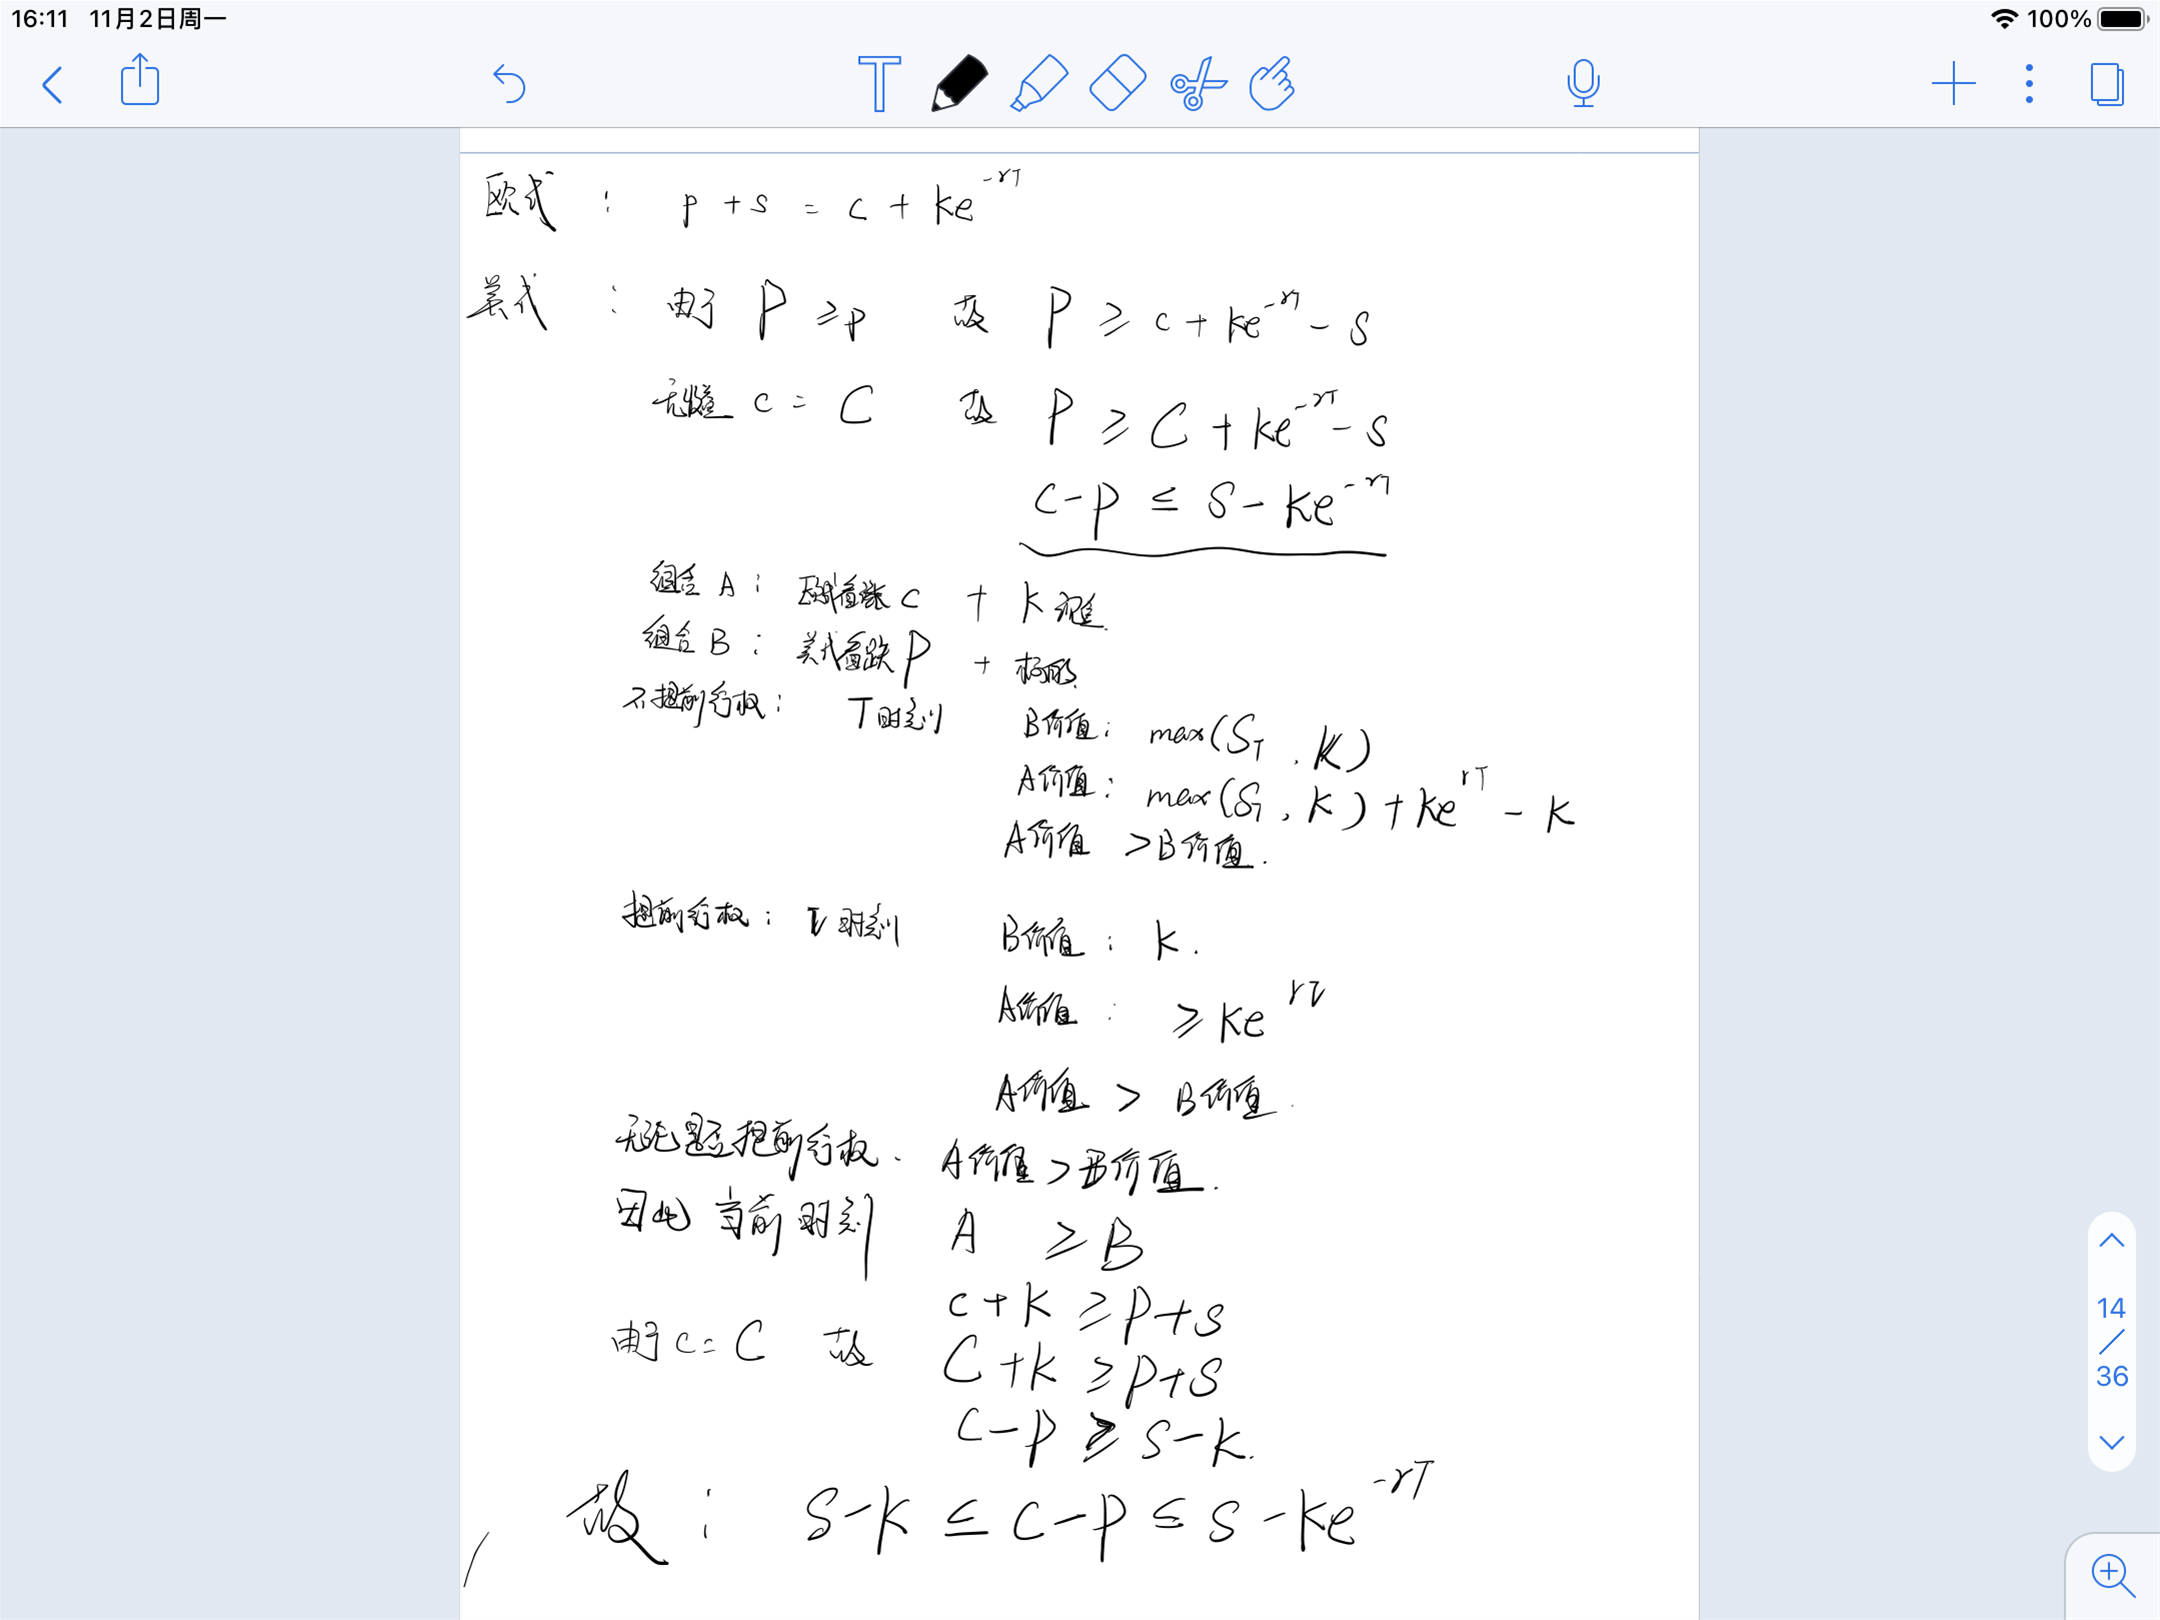 16:11 11月2日周一 100%
欧式 : p + s = c + ke^{-rT}
美式 : 由于 P ≥ p 故 P ≥ c + ke^{-rT} - s
无收益 c = C 故 P ≥ C + ke^{-rT} - s
C - P ≤ S - ke^{-rT}
组合 A : 欧式看涨 c + K 现金
组合 B : 美式看跌 P + 标的
不提前行权 : T时刻 B价值 : max(S_T, K)
A价值 : max(S_T, K) + ke^{rT} - K
A价值 > B价值.
提前行权 : τ时刻 B价值 : K.
A价值 : ≥ Ke^{rτ}
A价值 > B价值.
无论是否提前行权. A价值 > B价值.
因此 当前时刻 A ≥ B
c + K ≥ P + S
由于 c = C 故 C + K ≥ P + S
C - P ≥ S - K.
故 : S - K ≤ C - P ≤ S - Ke^{-rT}
14
/
36